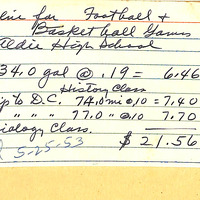 for Football &
Basket ball Games
Aldie High School
34.0 gal @ .19 = 6.46
History Class
ip to D.C. 74.0 mi @ 10 = 7.40
" " " 77.0 " @ 10 7.70
iology Class.
5-25-53 $ 21.56